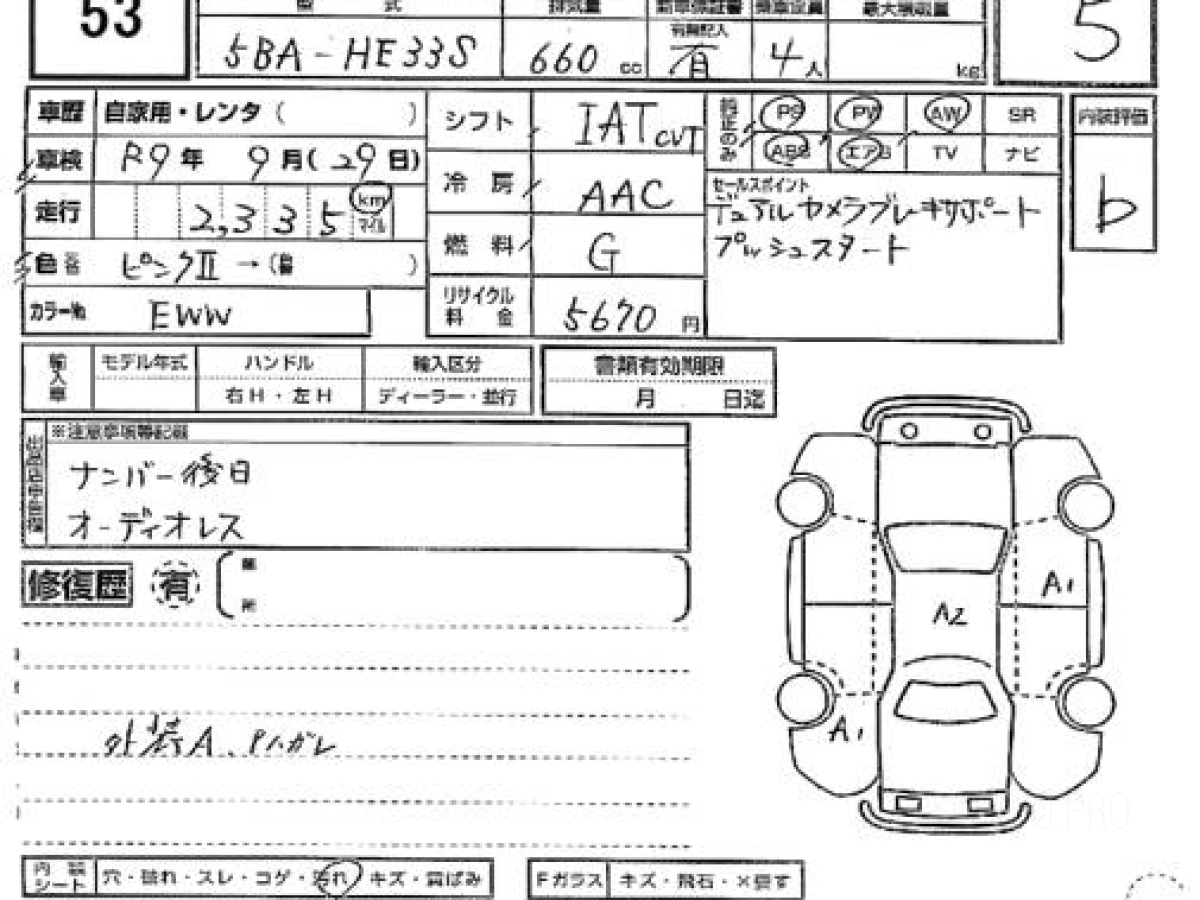 53
型 式
排気量
新車保証書
乗車定員
最大積載量
5
5BA-HE33S
660 cc
有無記入
有
4人
kg
車歴 自家用・レンタ( )
車検 R9年 9月(29日)
走行 2,335 km マイル
色 元色 ピンクII →(自 )
カラーNo EWW
シフト IAT CVT
冷房 AAC
燃料 G
リサイクル料金 5670円
純正のみ PS PW AW SR
ABS エアB TV ナビ
セールスポイント
デュアルカメラブレーキサポート
プッシュスタート
内装評価
b
輸入車 モデル年式 ハンドル 輸入区分
右H・左H ディーラー・並行
書類有効期限
月 日迄
出品店申告欄
※注意事項等記載
ナンバー後日
オーディオレス
修復歴 有
箇
所
外装A、Pハガレ
A1
A2
A1
内張シート 穴・破れ・スレ・コゲ・汚れ・キズ・黄ばみ
Fガラス キズ・飛石・×要す
.PRO